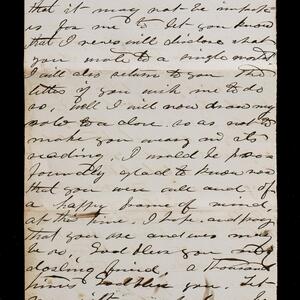 that it may not be impost-
is for me to let you know
that I never will disclose what
you wrote to a single mortal
I will also return to you the
letters if you wish me to do
so, well I will now draw my
note to a close. so as not to
make you weary in its
reading. I would be pro-
foundly glad to know now
that you were well and of
a happy frame of mind
at this time, I hope and pray
that you are and ever may
be so, God bless you my
darling friend, a thousand
times God bless you. Let